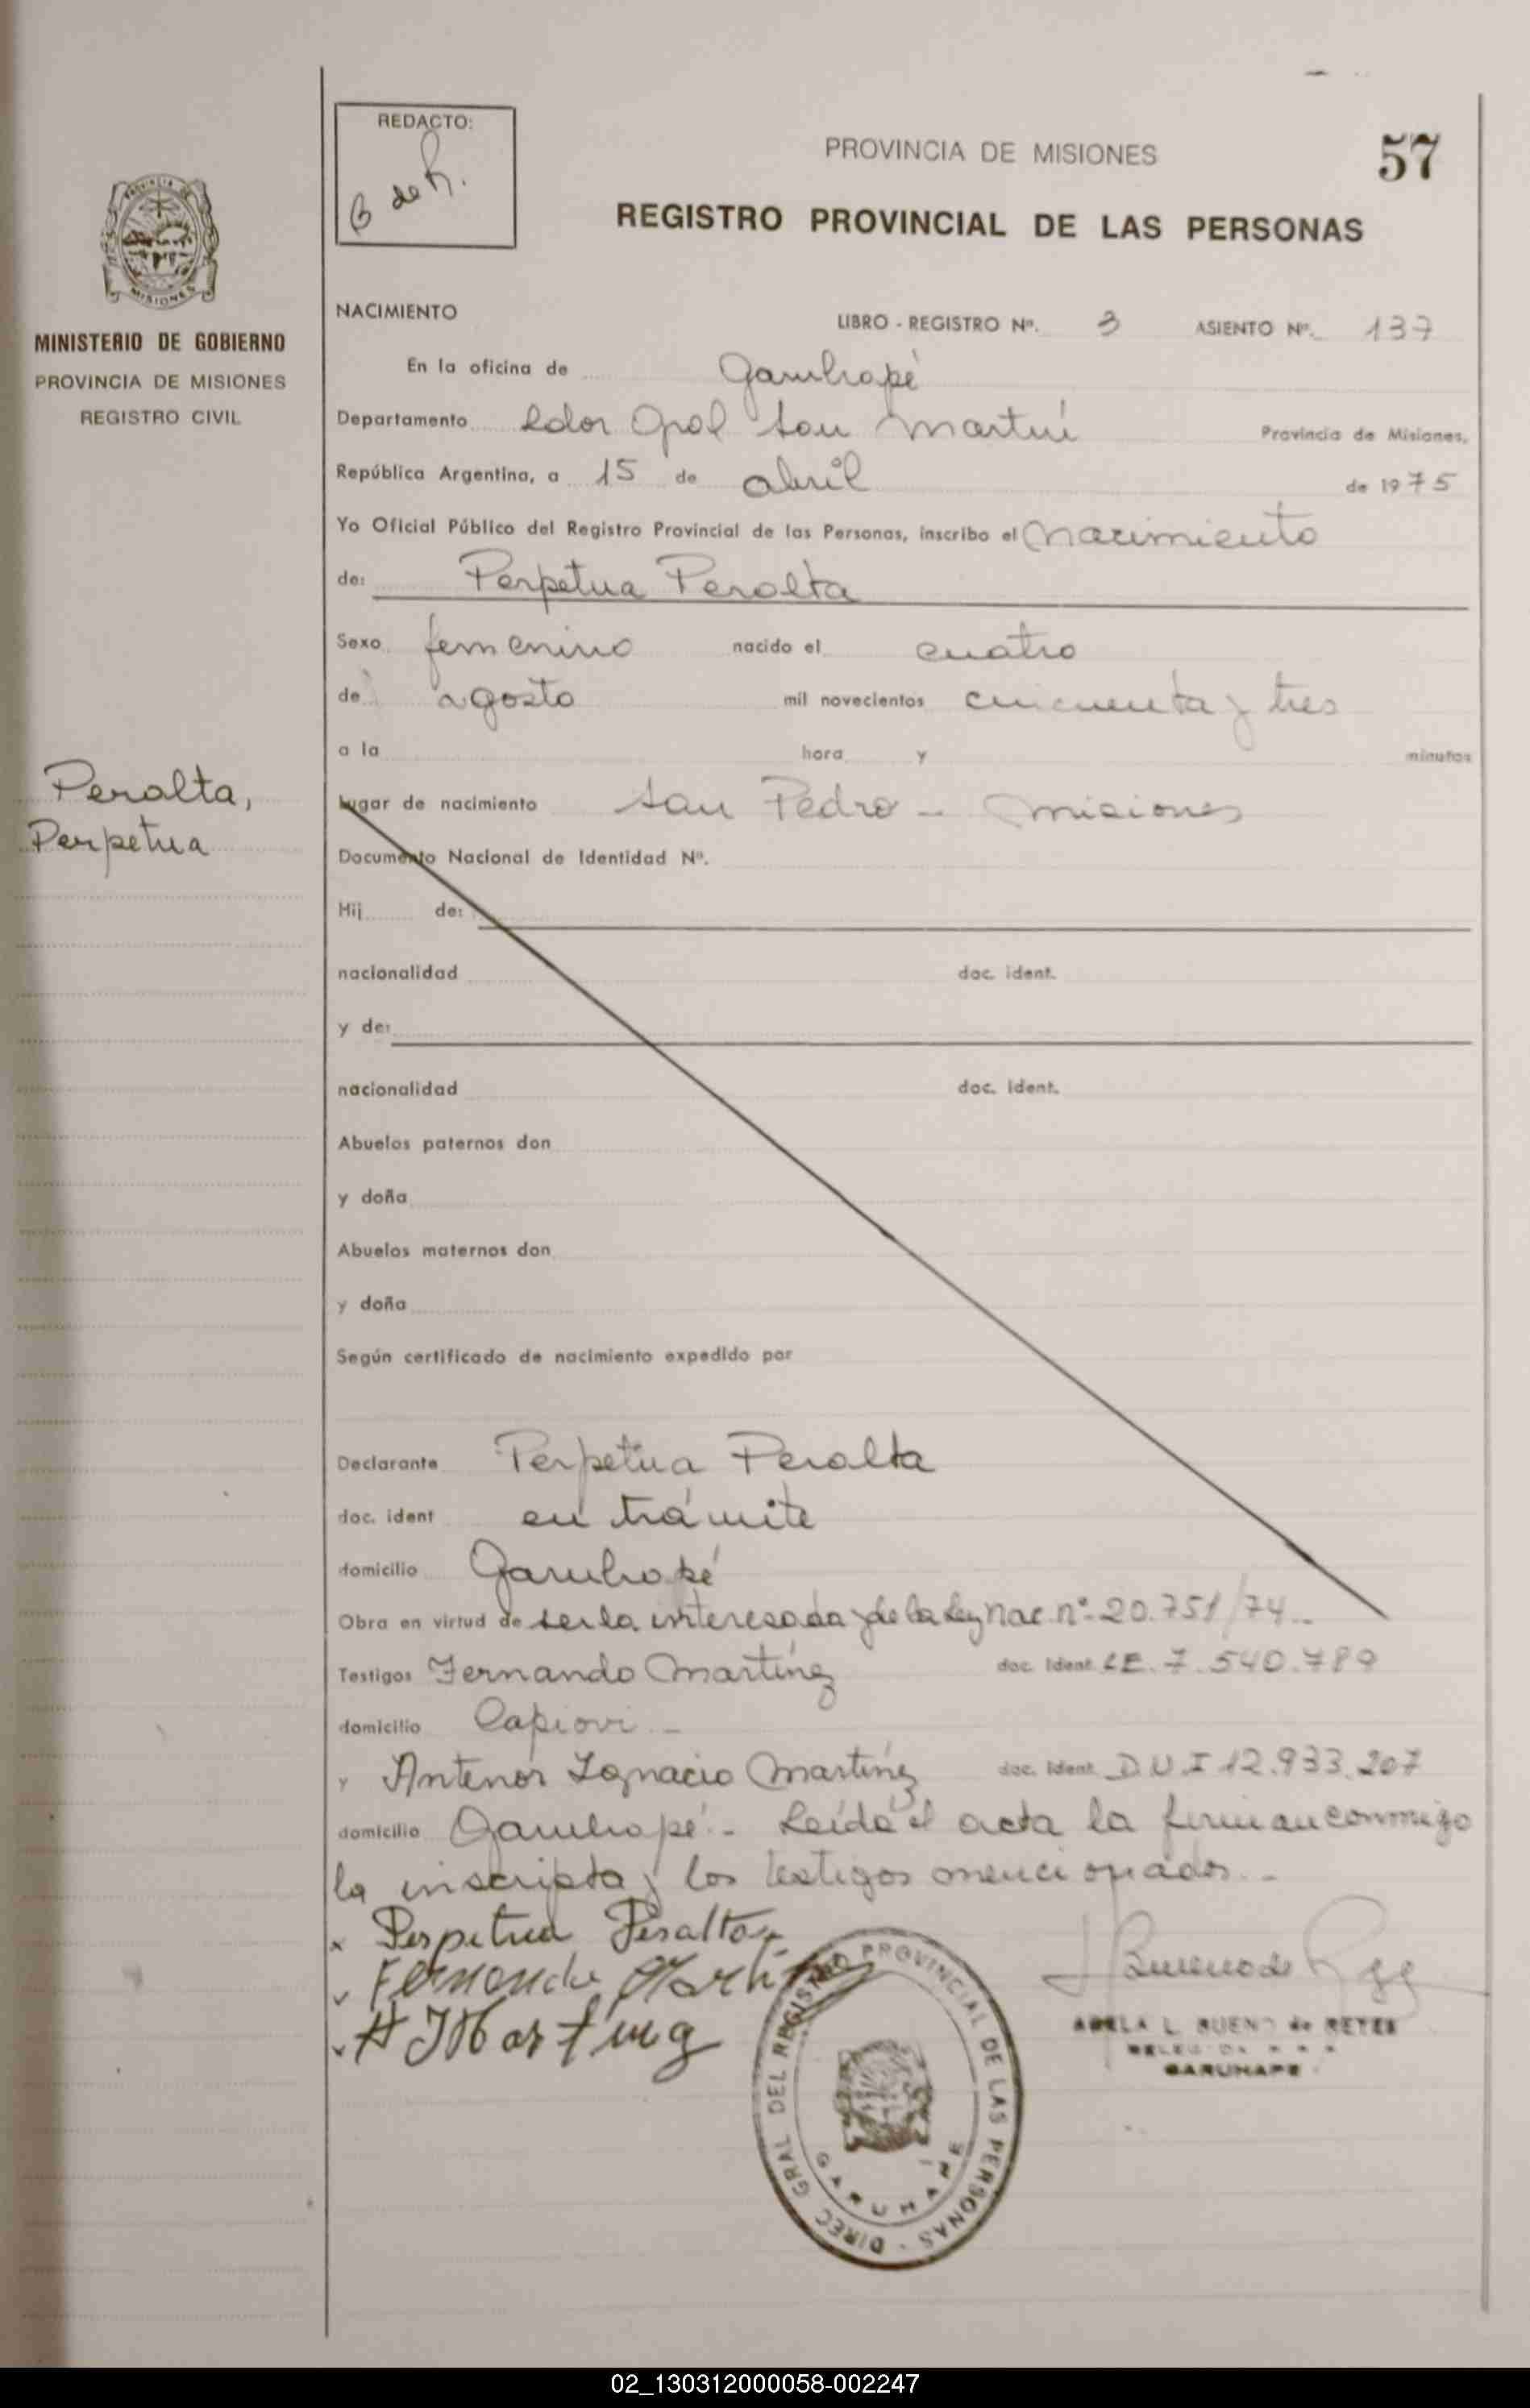 REDACTO:
B de R.
PROVINCIA DE MISIONES
57
REGISTRO PROVINCIAL DE LAS PERSONAS
MISIONES
MINISTERIO DE GOBIERNO
PROVINCIA DE MISIONES
REGISTRO CIVIL
NACIMIENTO
LIBRO - REGISTRO Nº. 3 ASIENTO Nº. 137
En la oficina de Garuhapé
Departamento Ldor Gral San Martín Provincia de Misiones,
República Argentina, a 15 de abril de 1975
Yo Oficial Público del Registro Provincial de las Personas, inscribo el nacimiento
de: Perpetua Peralta
Sexo femenino nacido el cuatro
de agosto mil novecientos cincuenta y tres
a la hora y minutos
Peralta,
Perpetua
Lugar de nacimiento San Pedro - Misiones
Documento Nacional de Identidad Nº.
Hij de:
nacionalidad doc. ident.
y de:
nacionalidad doc. ident.
Abuelos paternos don
y doña
Abuelos maternos don
y doña
Según certificado de nacimiento expedido por
Declarante Perpetua Peralta
doc. ident en trámite
domicilio Garuhapé
Obra en virtud de ser la interesada y de la Ley Nac. nº 20.751/74 -
Testigos Fernando Martínez doc. ident. LE. 7.540.789
domicilio Capiovi -
y Antenor Ignacio Martínez doc. ident. D.U.I 12.933.207
domicilio Garuhapé - Leída el acta la firman conmigo
la inscripta y los testigos mencionados. -
x Perpetua Peralta
Fernando Martinez
A I Martinez
ADELA L. BUENO de REYES
GARUHAPE
DIREC GRAL DEL REGISTRO PROVINCIAL DE LAS PERSONAS -
GARUHAPE
02_130312000058-002247